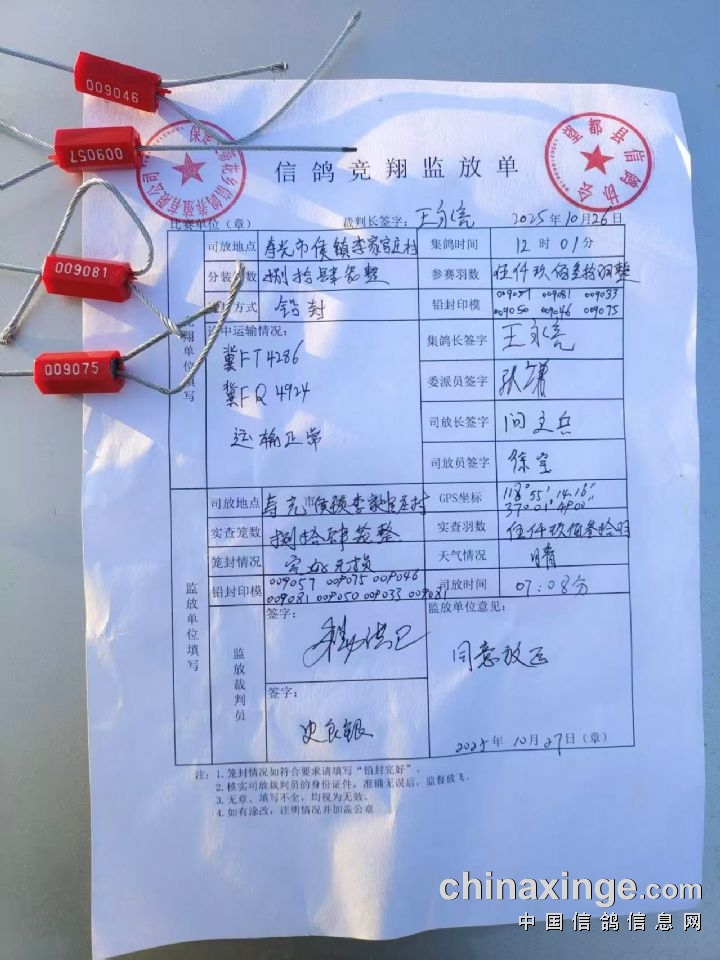 009046
009057
009081
009075
望都县信鸽协会
信鸽竞翔监放单
比赛单位（章） 裁判长签字： 2025年10月26日
司放地点 寿光市侯镇李家官庄村 集鸽时间 12时01分
分装笼数 捌拾肆笼整 参赛羽数 伍仟玖佰叁拾羽整
方式 铅封 铅封印模 009057 009081 009033
009050 009046 009075
竞翔单位填写
途中运输情况：
冀FT4286
冀FQ4924
运输正常
集鸽长签字
委派员签字
司放长签字
司放员签字 徐宝
司放地点 寿光市侯镇李家官庄村 GPS坐标 118°55′14.16″
实查笼数 捌拾肆笼整 实查羽数 伍仟玖佰叁拾羽
笼封情况 完好无损 天气情况 晴
铅封印模 009057 009075 009046
009081 009050 009033 009081
司放时间 07:08分
监放单位填写
监放裁判员
签字：
签字：
史良银
监放单位意见：
同意放飞
2025年10月27日（章）
注：1.笼封情况如符合要求请填写“铅封完好”。
2.核实司放裁判员的身份证件，准确无误后，监督放飞。
3.无章、填写不全，均视为无效。
4.如有涂改，注明情况并加盖公章
chinaxinge.com
中国信鸽信息网